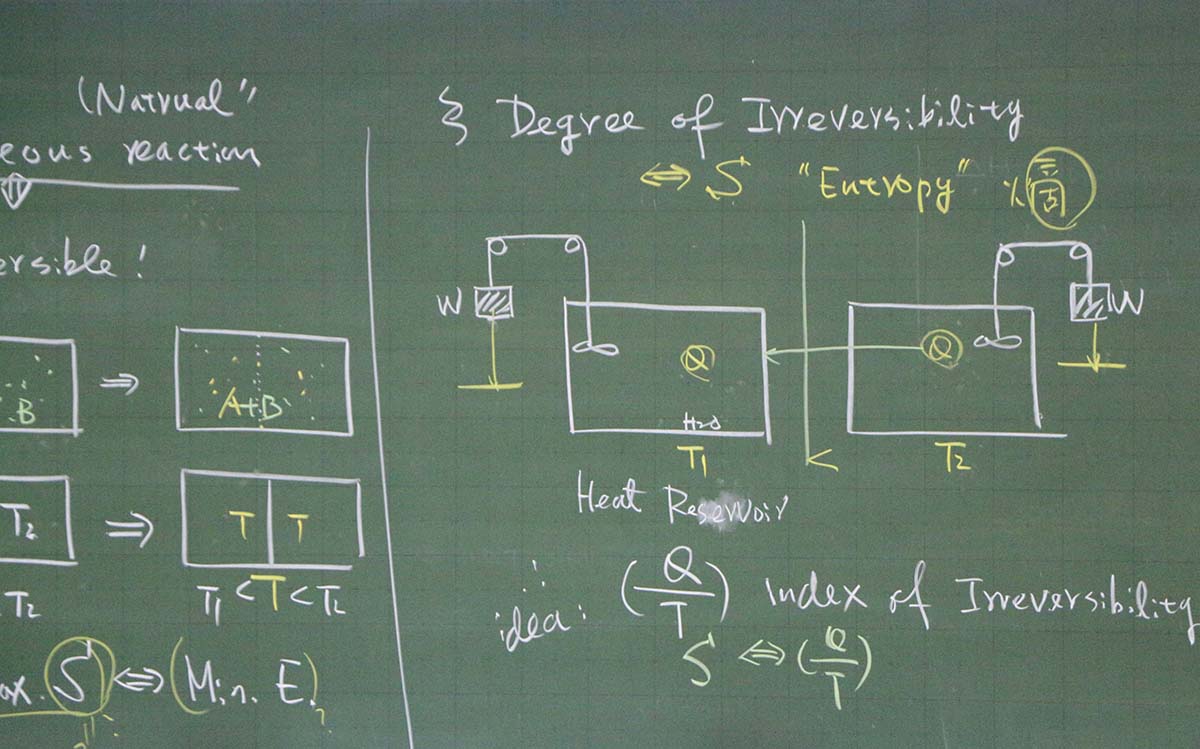 "Natrual"
eous reaction
ersible!
B ⇒ A+B
T₂ ⇒ T T
T₂ T₁ < T < T₂
ax. S ⇔ (Min. E)
?
§ Degree of Irreversibility
⇔ S "Entropy"
W Q H₂O T₁
< Q T₂ W
Heat Reservoir
∴ idea: (Q/T) Index of Irreversibility
S ⇔ (Q/T)